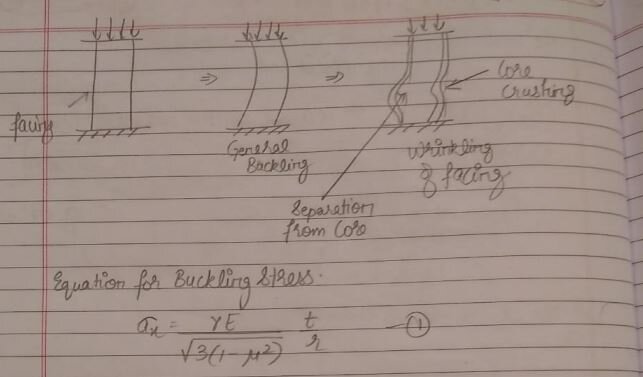 facing
⇒
⇒
Core
crushing
General
Buckling
Wrinkling
of facing
Separation
from Core
Equation for Buckling Stress.
σx = γE / √3(1-μ²) t/r —①